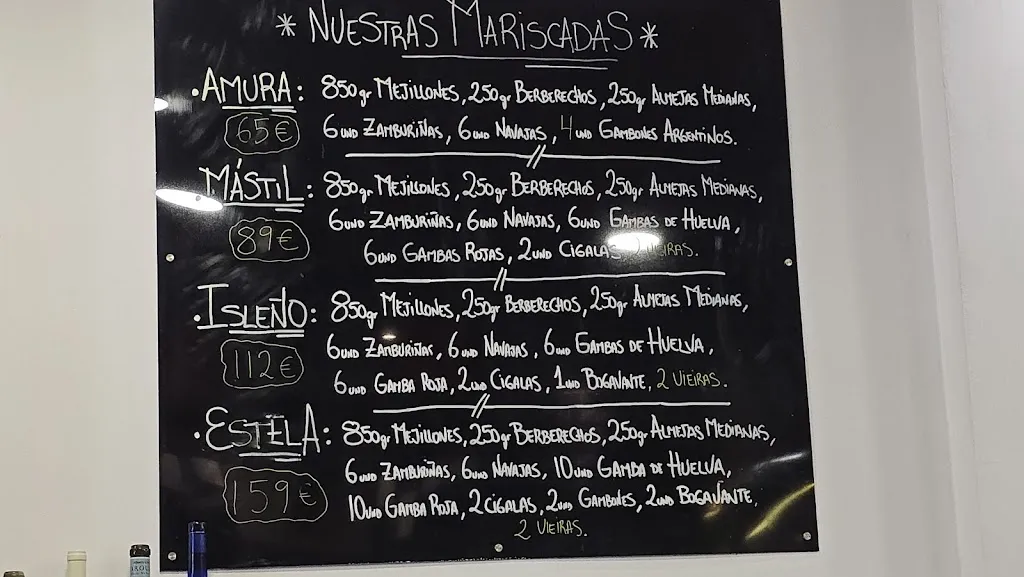 * NUESTRAS MARISCADAS *
· AMURA: 850gr MEJILLONES, 250gr BERBERECHOS, 250gr ALMEJAS MEDIANAS,
65€ 6UND ZAMBURIÑAS, 6UND NAVAJAS, 4UND GAMBONES ARGENTINOS.
MÁSTIL: 850gr MEJILLONES, 250gr BERBERECHOS, 250gr ALMEJAS MEDIANAS,
6UND ZAMBURIÑAS, 6UND NAVAJAS, 6UND GAMBAS DE HUELVA,
89€ 6UND GAMBAS ROJAS, 2UND CIGALAS, VIEIRAS.
· ISLEÑO: 850gr MEJILLONES, 250gr BERBERECHOS, 250gr ALMEJAS MEDIANAS,
112€ 6UND ZAMBURIÑAS, 6UND NAVAJAS, 6UND GAMBAS DE HUELVA,
6UND GAMBA ROJA, 2UND CIGALAS, 1UND BOGAVANTE, 2 VIEIRAS.
· ESTELA: 850gr MEJILLONES, 250gr BERBERECHOS, 250gr ALMEJAS MEDIANAS,
6UND ZAMBURIÑAS, 6UND NAVAJAS, 10UND GAMBA DE HUELVA,
159€ 10UND GAMBA ROJA, 2 CIGALAS, 2UND GAMBONES, 2UND BOGAVANTE,
2 VIEIRAS.